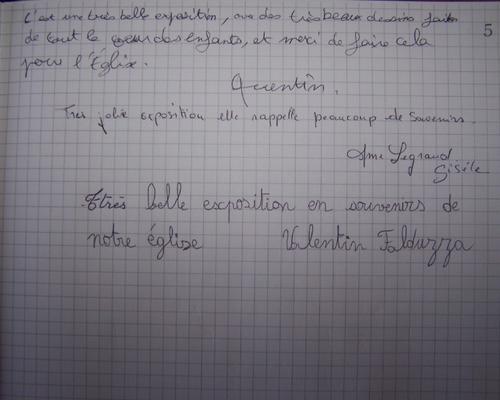 C'est une très belle exposition, avec des très beaux dessins faits
de tout le coeur des enfants, et merci de faire cela
pour l'Église.
5
Quentin.
Tres jolie exposition elle rappelle beaucoup de souvenirs.
Mme Legrand
Gisèle
très belle exposition en souvenirs de
notre église Valentin Falduzza